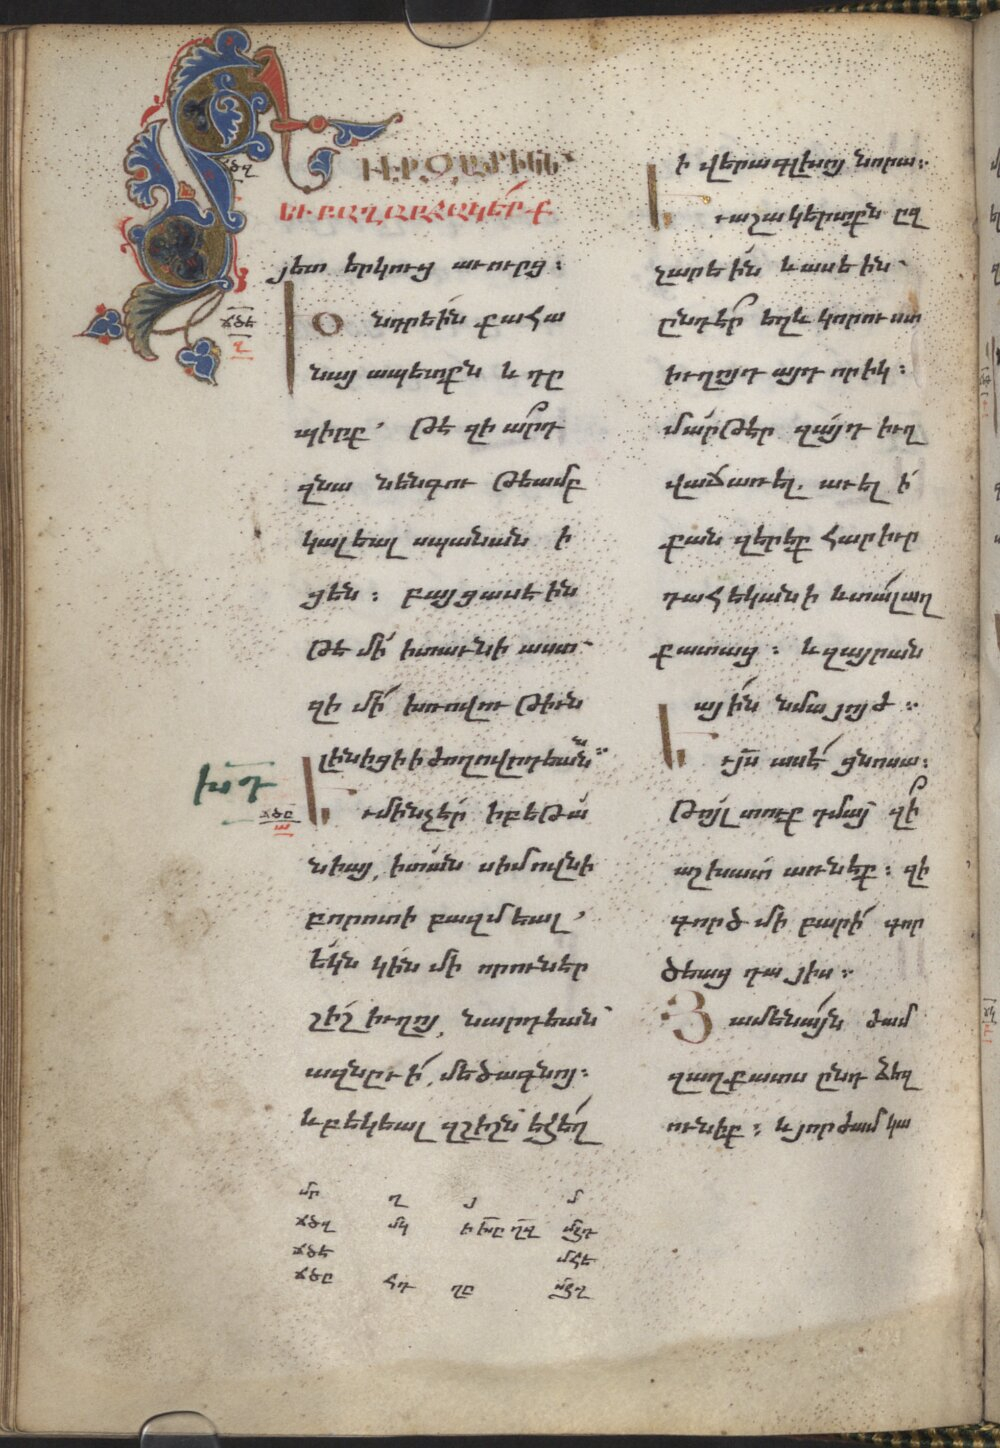 ՃԾԶ
ԵՒ ԷՐ ԶԱՏԻԿՆ՝
ԵՒ ԲԱՂԱՐՋԱԿԵՐՔ
յետ երկուց աւուրց։
ՃԾԷ
Խնդրէին քահա
նայապետքն և դը
պիրք՝ թէ զիա՞րդ
զնա նենգութեամբ
կալեալ սպանանի
ցեն։ բայց ասէին
թէ մի՛ ի տաւնի աստ՝
զի մի՛ խռովութիւն
լինիցի ի ժողովրդեան։
ՃԾԸ
Եւ մինչ էր ի բեթա
նիայ, ի տան սիմովնի
բորոտի բազմեալ՝
եկն կին մի որ ունէր
շիշ իւղոյ նարդեան՝
ազնըւի, մեծագնոյ։
և բեկեալ զշիշն եհեղ
ի վերայ գլխոյ նորա։
Եւ աշակերտքն ըզ
չարէին և ասէին՝
ընդէ՞ր եղև կորուստ
իւղոյդ այդորիկ։
մարթ էր զայդ իւղ
վաճառել. աւելի
քան զերեք հարիւր
դահեկանի և տալ աղ
քատաց։ և զայրան
ային նմա յոյժ։
Եւ յս ասէ ցնոսա։
թոյլ տուք դմայ զի՞
աշխատ առնէք։ զի
գործ մի բարի գոր
ծեաց դա յիս։
Յամենայն ժամ
զաղքատս ընդ ձեզ
ունիք։ և յորժամ կա